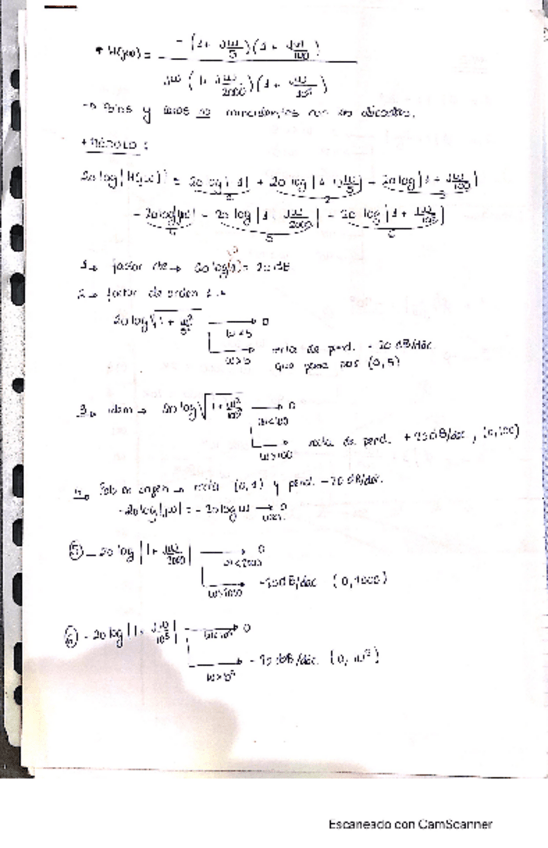 * H(jω) = -(1 + jω/5)(1 + jω/100) / jω (1 + jω/2000)(1 + jω/10⁵)
→ Polos y ceros no
* MÓDULO :
20 log |H(jω)| = 20 log |1| + 20 log |1 + jω/5| - 20 log |1 + jω/100|
- 20 log |jω| - 20 log |1 + jω/2000| - 20 log |1 + jω/10⁵|
1 → factor cte → 20 log( ) = 20 dB
2 → factor de orden 1 →
20 log √1 + ω²/5² → 0
ω<5
ω>5 → recta de pend. - 20 dB/dec.
que pasa por (0, 5)
3 → idem → 20 log √1 + ω²/100² → 0
ω<100
ω>100 → recta de pend. + 20 dB/dec , (0,100)
4 → Polo en origen → recta (0, 1) y pend. -20 dB/dec.
-20 log |jω| = - 20 log ω → 0
5 - 20 log |1 + jω/2000| → 0
ω<2000
ω>2000 → -20 dB/dec (0, 2000)
6 - 20 log |1 + jω/10⁵| → 0
ω<10⁵
ω>10⁵ → - 20 dB/dec. (0, 10⁵)
Escaneado con CamScanner